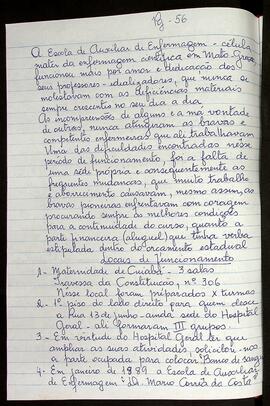 Pg - 56
A Escola de Auxiliar de Enfermagem - célula
mater da enfermagem científica em Mato Grosso,
funcionou mais por amor e dedicação dos
seus professores - idealizadores, que nunca se
molestavam com as deficiências materiais
sempre crescentes no seu dia a dia.
As incompreensões de alguns e a má vontade
de outros, nunca atingiram as bravas e
competentes enfermeiras que ali trabalhavam
Uma das dificuldades encontradas nesse
período de funcionamento, foi a falta de
uma sede própria e consequentemente as
frequentes mudanças, que muito trabalho
e aborrecimento causavam, mesmo assim, as
bravas pioneiras enfrentavam com coragem
procurando sempre as melhores condições
para a continuidade do curso, quanto a
parte financeira (aluguel) que tinha verba
estipulada dentro do orçamento estadual
Locais de funcionamento
1 - Maternidade de Cuiabá - 3 salas
Travessa da Constituição, nº 306
Nesse local foram preparados X turmas
2 - 1º piso do lado direito para quem desce
a Rua 13 de junho - ainda sede do Hospital
Geral - ali formaram III grupos.
3 - Em virtude do Hospital Geral ter que
ampliar as suas atividades, solicitou-nos
a parte ocupada para colocar: Banco de sangue
4 - Em janeiro de a Escola de Auxiliar
de Enfermagem: Dr. Mario Corrêa da Costa